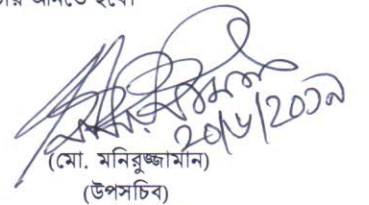 আনতে হবে।
২০/৬/২০১৯
(মো. মনিরুজ্জামান)
(উপসচিব)